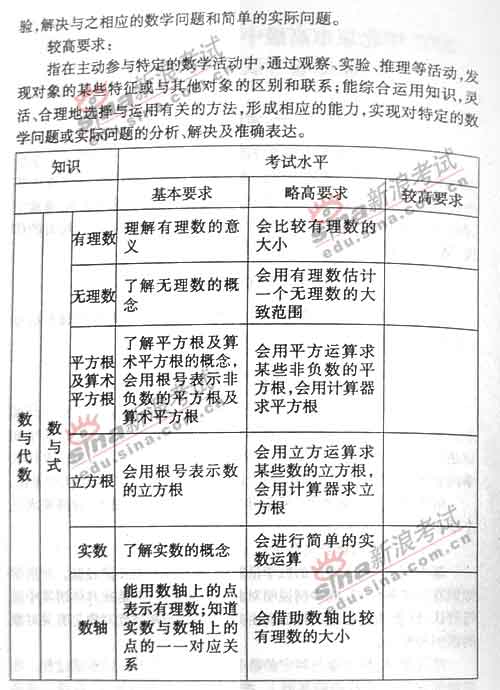 验,解决与之相应的数学问题和简单的实际问题。
较高要求:
指在主动参与特定的数学活动中,通过观察、实验、推理等活动,发
现对象的某些特征或与其他对象的区别和联系;能综合运用知识,灵
活、合理地选择与运用有关的方法,形成相应的能力,实现对特定的数
学问题或实际问题的分析、解决及准确表达。
知识
考试水平
基本要求
略高要求
较高要求
数与代数
数与式
有理数
理解有理数的意
义
会比较有理数的
大小
无理数
了解无理数的概
念
会用有理数估计
一个无理数的大
致范围
平方根
及算术
平方根
了解平方根及算
术平方根的概念,
会用根号表示非
负数的平方根及
算术平方根
会用平方运算求
某些非负数的平
方根,会用计算器
求平方根
立方根
会用根号表示数
的立方根
会用立方运算求
某些数的立方根,
会用计算器求立
方根
实数
了解实数的概念
会进行简单的实
数运算
数轴
能用数轴上的点
表示有理数;知道
实数与数轴上的
点的一一对应关
系
会借助数轴比较
有理数的大小
sina新浪考试
edu.sina.com.cn
sina新浪考试
edu.sina.com.cn
sina新浪考试
edu.sina.com.cn
sina新浪考试
edu.sina.com.cn